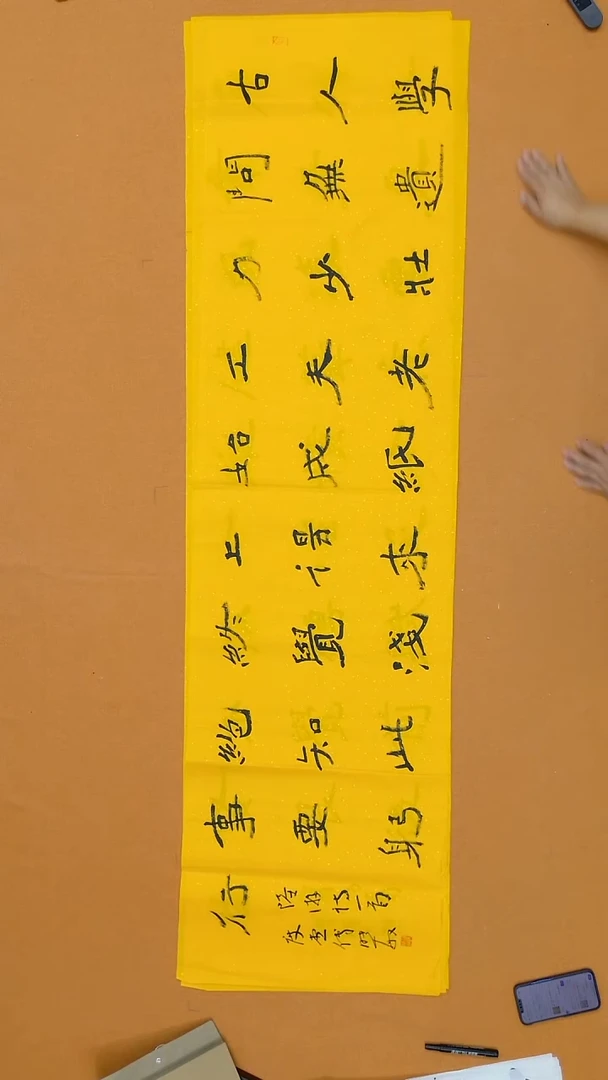 古人學
問無遺
力少壯
工夫老
始成紙
上得來
終覺淺
絕知此
事要躬
行
陸游詩一首